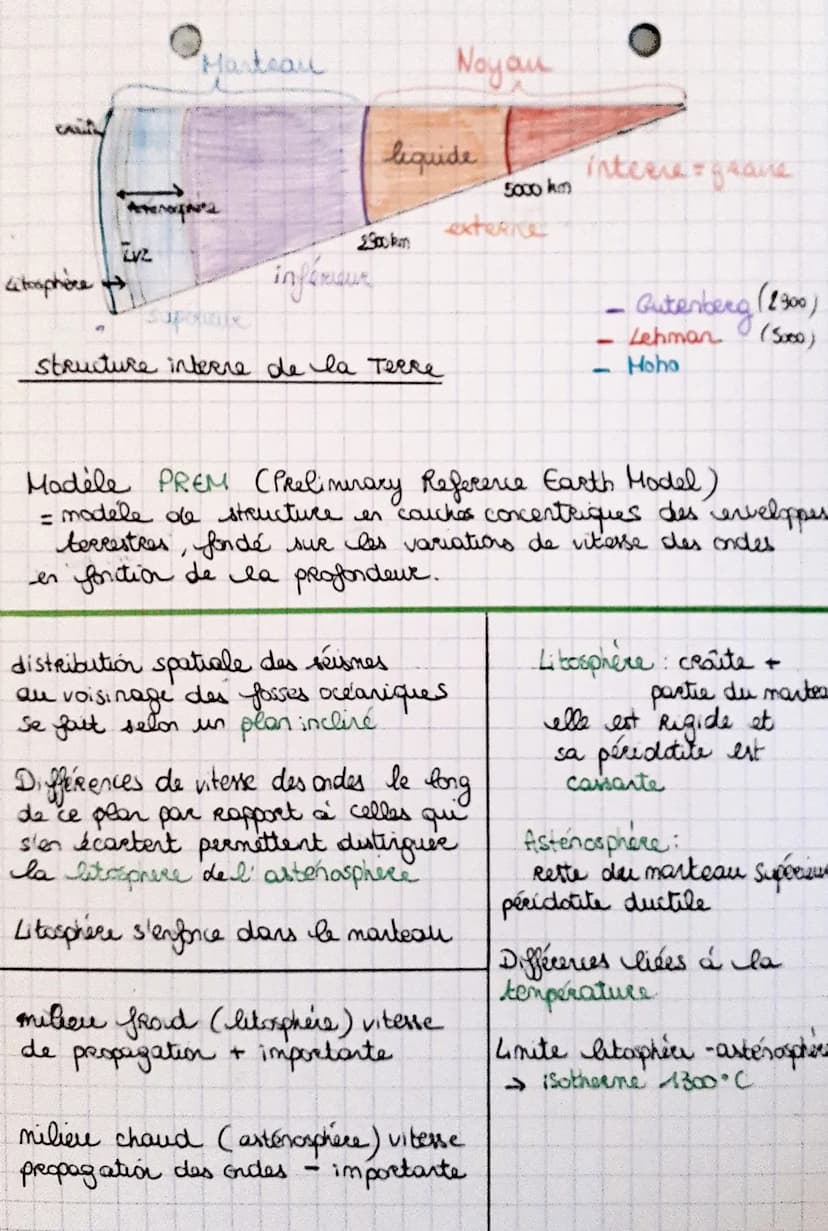 Marteau
Noyau
croûte
liquide
interne = graine
5000 km
Asténosphère
externe
2900 km
LVZ
inférieur
Litosphère
supérieur
- Gutenberg (2900)
- Lehman (5000)
- Moho
structure interne de la Terre
Modèle PREM (Preliminary Reference Earth Model)
= modèle de structure en couches concentriques des enveloppes
terrestres, fondé sur les variations de vitesse des ondes
en fonction de la profondeur.
distribution spatiale des séismes
au voisinage des fosses océaniques
se fait selon un plan incliné
Différences de vitesse des ondes le long
de ce plan par rapport à celles qui
s'en écartent permettent distinguer
la litosphère de l'asténosphère
Litosphère s'enfonce dans le manteau
milieu froid (litosphère) vitesse
de propagation + importante
milieu chaud (asténosphère) vitesse
propagation des ondes - importante
Litosphère : croûte +
partie du mantea
elle est rigide et
sa péridotite est
cassante
Asténosphère :
reste du manteau supérieur
péridotite ductile
Différences liées à la
température
Limite litosphère - asténosphère
→ isotherme 1300°C